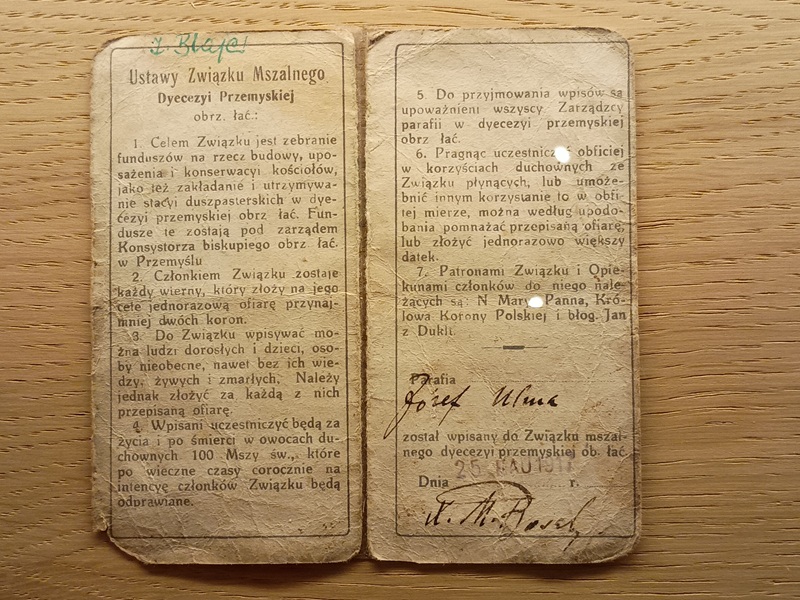 Ustawy Związku Mszalnego
Dyecezyi Przemyskiej
obrz. łać.:
1. Celem Związku jest zebranie
funduszów na rzecz budowy, upo-
sażenia i konserwacyi kościołów,
jako też zakładanie i utrzymywa-
nie stacyi duszpasterskich w dye-
cezyi przemyskiej obrz łać. Fun-
dusze te zostają pod zarządem
Konsystorza biskupiego obrz. łać.
w Przemyślu
2. Członkiem Związku zostaje
każdy wierny, który złoży na jego
cele jednorazową ofiarę przynaj-
mniej dwóch koron.
3. Do Związku wpisywać mo-
żna ludzi dorosłych i dzieci, oso-
by nieobecne, nawet bez ich wie-
dzy, żywych i zmarłych, Należy
jednak złożyć za każdą z nich
przepisaną ofiarę.
4. Wpisani uczestniczyć będą za
życia i po śmierci w owocach du-
chownych 100 Mszy św., które
po wieczne czasy corocznie na
intencyę członków Związku będą
odprawiane.
5. Do przyjmowania wpisów są
upoważnieni wszyscy Zarządzcy
parafii w dyecezyi przemyskiej
obrz łać.
6. Pragnąc uczestniczyć obficiej
w korzyściach duchownych ze
Związku płynących, lub umoże-
bnić innym korzystanie to w obfi-
tej mierze, można według upodo-
bania pomnażać przepisaną ofiarę,
lub złożyć jednorazowo większy
datek.
7. Patronami Związku i Opie-
kunami członków do niego nale-
żących są: N Marya Panna, Kró-
lowa Korony Polskiej i błog. Jan
z Dukli.
Parafia
Józef Ulma
został wpisany do Związku mszal-
nego dyecezyi przemyskiej ob. łać.
Dnia 25 r.
X. M.